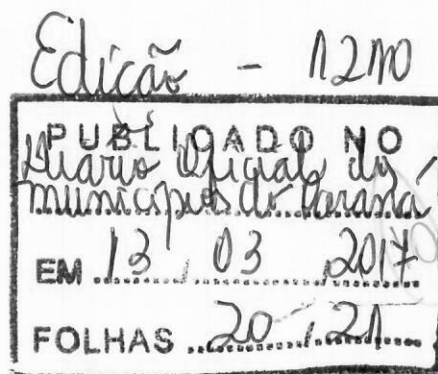 Edição - 1210
PUBLICADO NO
Diario Oficial dos
municípios do Paraná
EM 13 / 03 / 2017
FOLHAS 20 / 21